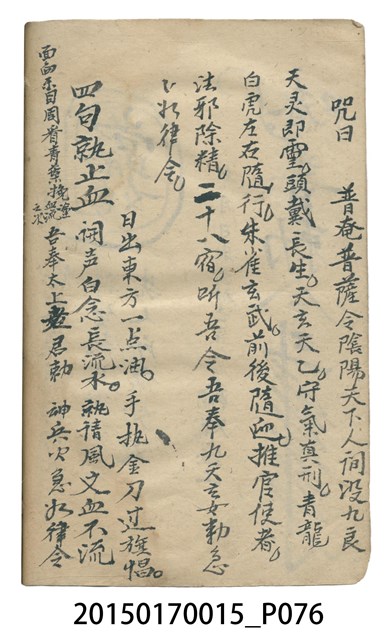 咒曰 普奄普薩令陰陽天下人间没九良
天灵即靈頭戴長生天玄天乙守氣真刑青龍
白虎左右隨行朱雀玄武前後隨迎推官使者
法邪除精二十八宿听吾令吾奉九天玄女勅急
急如律令
日出東方一点油手执金刀过旌惕
四句執止血 词声白念長流水執請風文血不流
吾奉太上老君勅 神兵火急如律令
20150170015_P076